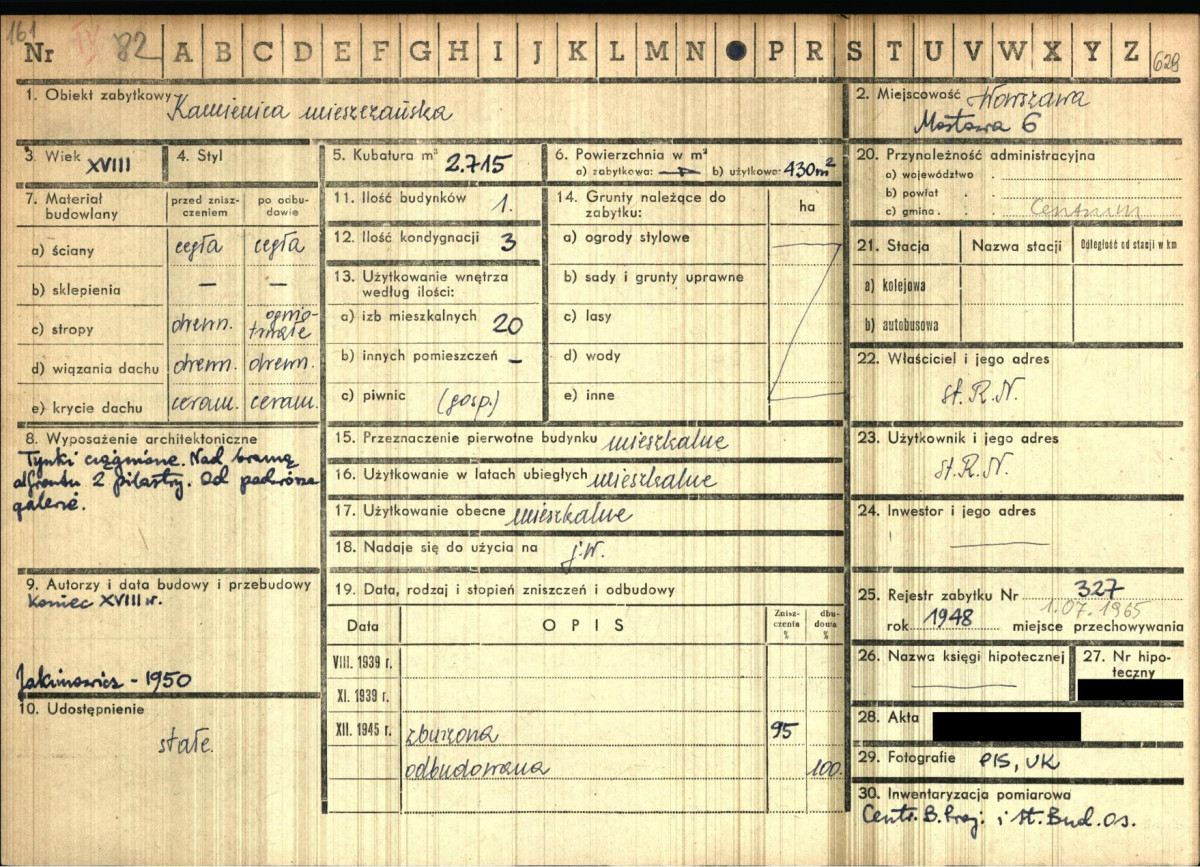 161
Nr IV 82 A B C D E F G H I J K L M N P R S T U V W X Y Z 628
1. Obiekt zabytkowy Kamienica mieszczańska
2. Miejscowość Warszawa
Mostowa 6
3. Wiek XVIII
4. Styl
5. Kubatura m³ 2.715
6. Powierzchnia w m²
a) zabytkowa: — b) użytkowa: 430m²
7. Materiał budowlany
przed zniszczeniem
po odbudowie
a) ściany cegła cegła
b) sklepienia — —
c) stropy drewn. ogniotrwałe
d) wiązania dachu drewn. drewn.
e) krycie dachu ceram. ceram.
8. Wyposażenie architektoniczne
Tynki ciągnione. Nad bramą
od frontu 2 pilastry. Od podwórza
galerie.
9. Autorzy i data budowy i przebudowy
Koniec XVIII w.
Jakimowicz - 1950
10. Udostępnienie
stałe.
11. Ilość budynków 1.
12. Ilość kondygnacji 3
13. Użytkowanie wnętrza
według ilości:
a) izb mieszkalnych 20
b) innych pomieszczeń –
c) piwnic (gosp.)
14. Grunty należące do
zabytku:
ha
a) ogrody stylowe
b) sady i grunty uprawne
c) lasy
d) wody
e) inne
15. Przeznaczenie pierwotne budynku mieszkalne
16. Użytkowanie w latach ubiegłych mieszkalne
17. Użytkowanie obecne mieszkalne
18. Nadaje się do użycia na j.w.
19. Data, rodzaj i stopień zniszczeń i odbudowy
Data
OPIS
Znisz-
czenia
%
dbu-
dowia
%
VIII. 1939 r.
XI. 1939 r.
XII. 1945 r. zburzona 95
odbudowana 100.
20. Przynależność administracyjna
a) województwo .
b) powiat .
c) gmina . . Centrum
21. Stacja Nazwa stacji Odległość od stacji w km
a) kolejowa
b) autobusowa
22. Właściciel i jego adres
st. R.N.
23. Użytkownik i jego adres
st. R.N.
24. Inwestor i jego adres
25. Rejestr zabytku Nr 327
1.07.1965
rok 1948 miejsce przechowywania
26. Nazwa księgi hipotecznej
27. Nr hipo-
teczny
28. Akta
29. Fotografie PIS, UK
30. Inwentaryzacja pomiarowa
Centr. B. Proj. i st. Bud. Os.